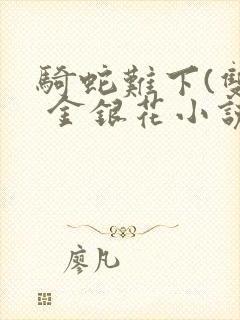 騎蛇難下(雙
金銀花小說
廖凡